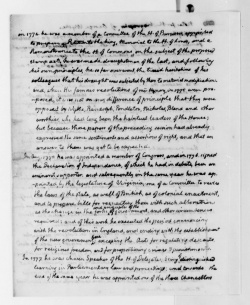 in 1764 he was a member of a Committee of the H. of Burgesses appointed
to prepare an address to the king, Memorial to the H. of Lords, and a
Remonstrance to the H. of Commons on the subject of the proposed
stamp act. he was made draughtsman of the last, and following
his own principles, he so far overwent the timid hesitations of his
colleagues that his draught was subjected by them to material modifications,
and, when the famous resolutions of mr Henry, in 1765, were pro-
posed, it was not on any difference of principle that they were
opposed by Wythe, Randolph, Pendleton, Nicholas, Bland and other
worthies who had long been the habitual leaders of the House;
but because those papers of the preceding session had already
expressed the same sentiments and assertions of right, and that an
answer to them was yet to be expected.
In Aug. 1775 he was appointed a member of Congress, and in 1776 signed
the Declaration of Independance, of which he had in debate been an
eminent supporter. and subsequently in the same year he was ap-
pointed, by the legislature of Virginia, one of a Committee to revise
the laws of the state, as well of British, as of Colonial enactment,
and to prepare bills for reenacting them with such alterations
as the change in the form of the government, and other circumstances
required; and of this work he executed the period commencing
with the revolution in England, and ending with the establishment
of the new government here; excepting the Acts for regulating descents
for religious freedom, and for proportioning crimes & punishments.
In 1777 he was chosen Speaker of the H. of Delegates, being distinguished
learning in Parliamentary law and proceedings; and towards the
end of the same year he was appointed one of the three Chancellors